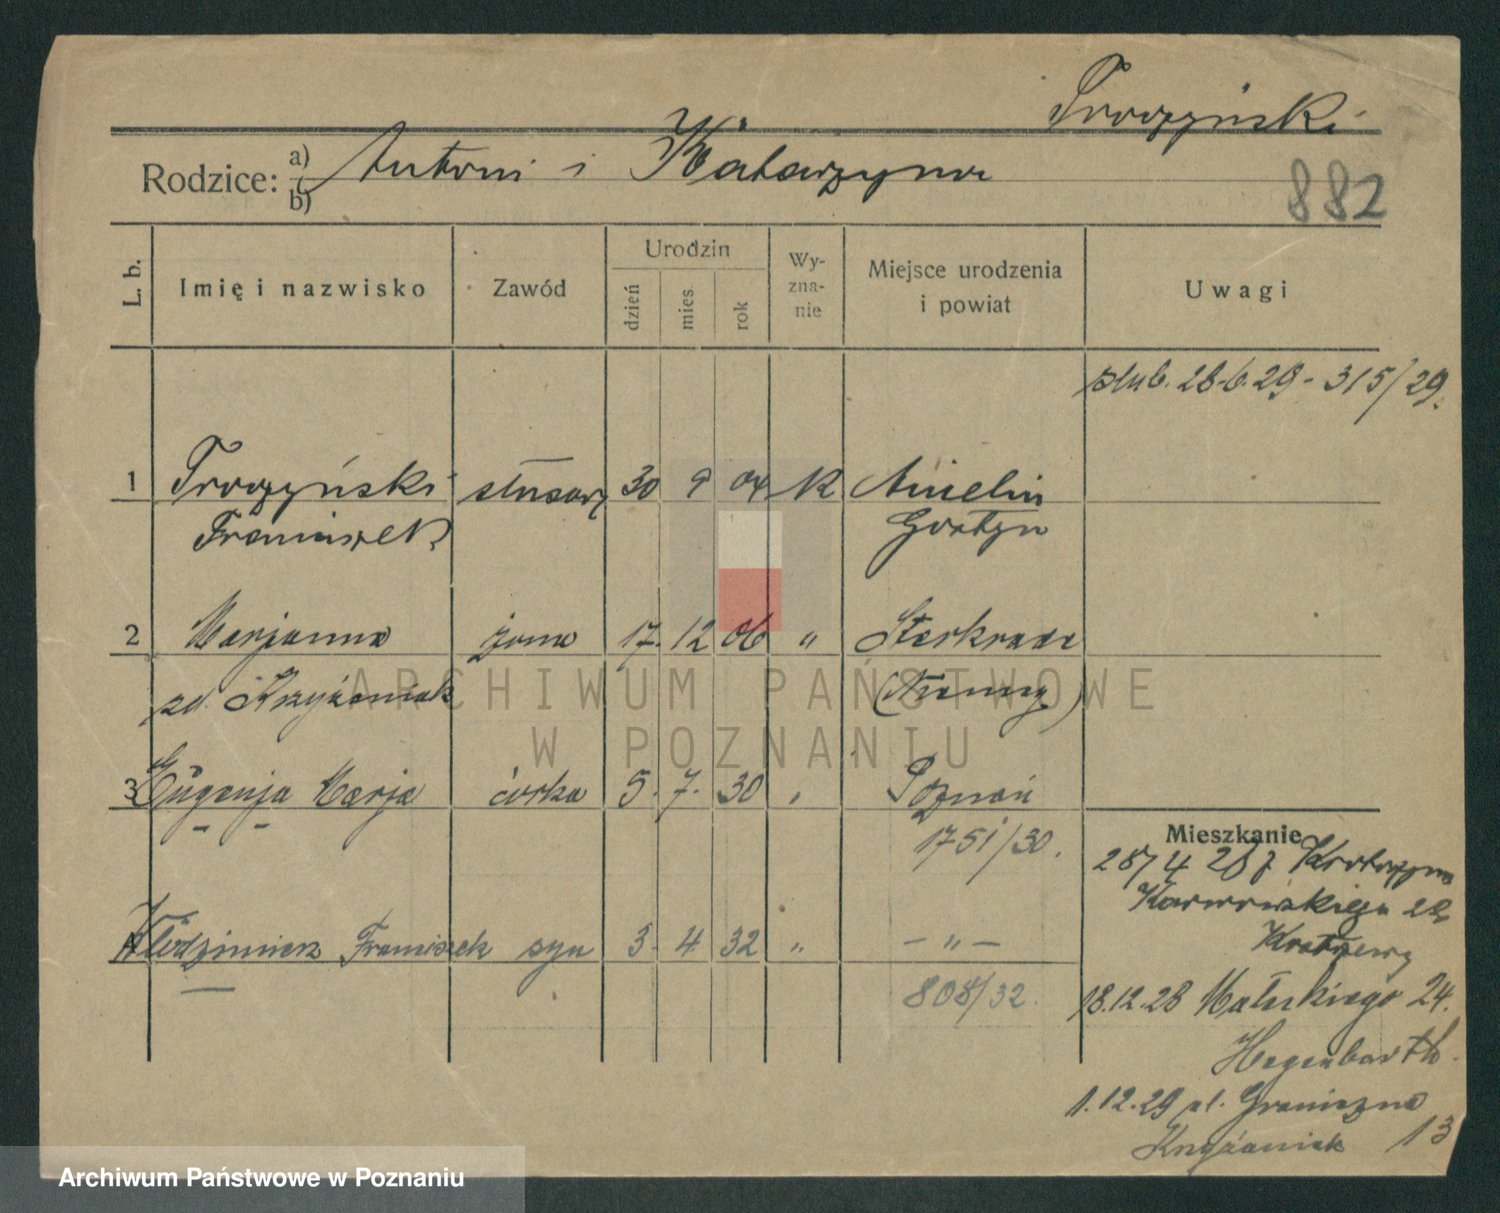 Troczyński
Rodzice: a) b) Antoni i Katarzyna
882
L. b.
Imię i nazwisko
Zawód
Urodzin
dzień
mies.
rok
Wy-
zna-
nie
Miejsce urodzenia
i powiat
Uwagi
ślub. 28.6.29 - 315/29.
1 Troczyński ślusarz 30 9 04 K Anielin
Franciszek Gostyń
2 Marjanna żona 17. 12 06 " Sterkrade
zd. Krzyżaniak (Niemcy)
3 Eugenja Marja córka 5. 7. 30 " Poznań
1751/30.
Mieszkanie
28/4 28 z Krotoszyna
22
4 Włodzimierz Franciszek syn 3. 4. 32 " - " -
805/32.
18.12.28 Małeckiego 24.
Hegenbarth.
1.12.29 ul. Graniczna
Krzyżaniak 13
ARCHIWUM PAŃSTWOWE
W POZNANIU
Archiwum Państwowe w Poznaniu